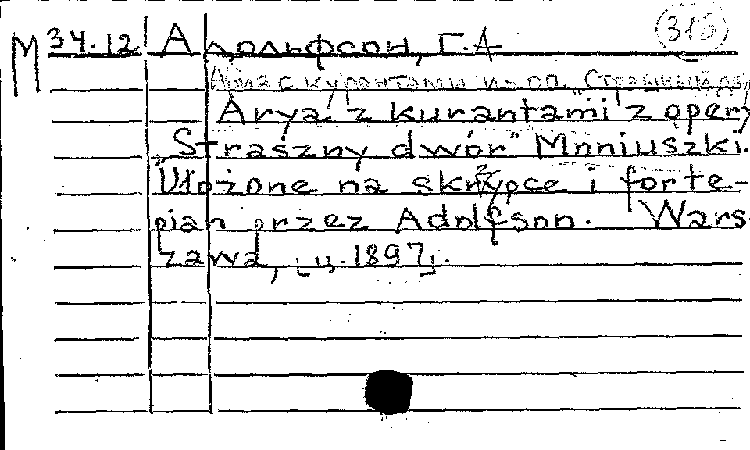 315
М 34.12 Адольфсон, Г.А
Ария с курантами из оп. „Страшный дв
Arya z kurantami z opery
„Straszny dwór" Moniuszki.
Ułożone na skrzypce i forte-
pian przez Adolfson. Wars
zawa, [ц. 1897].